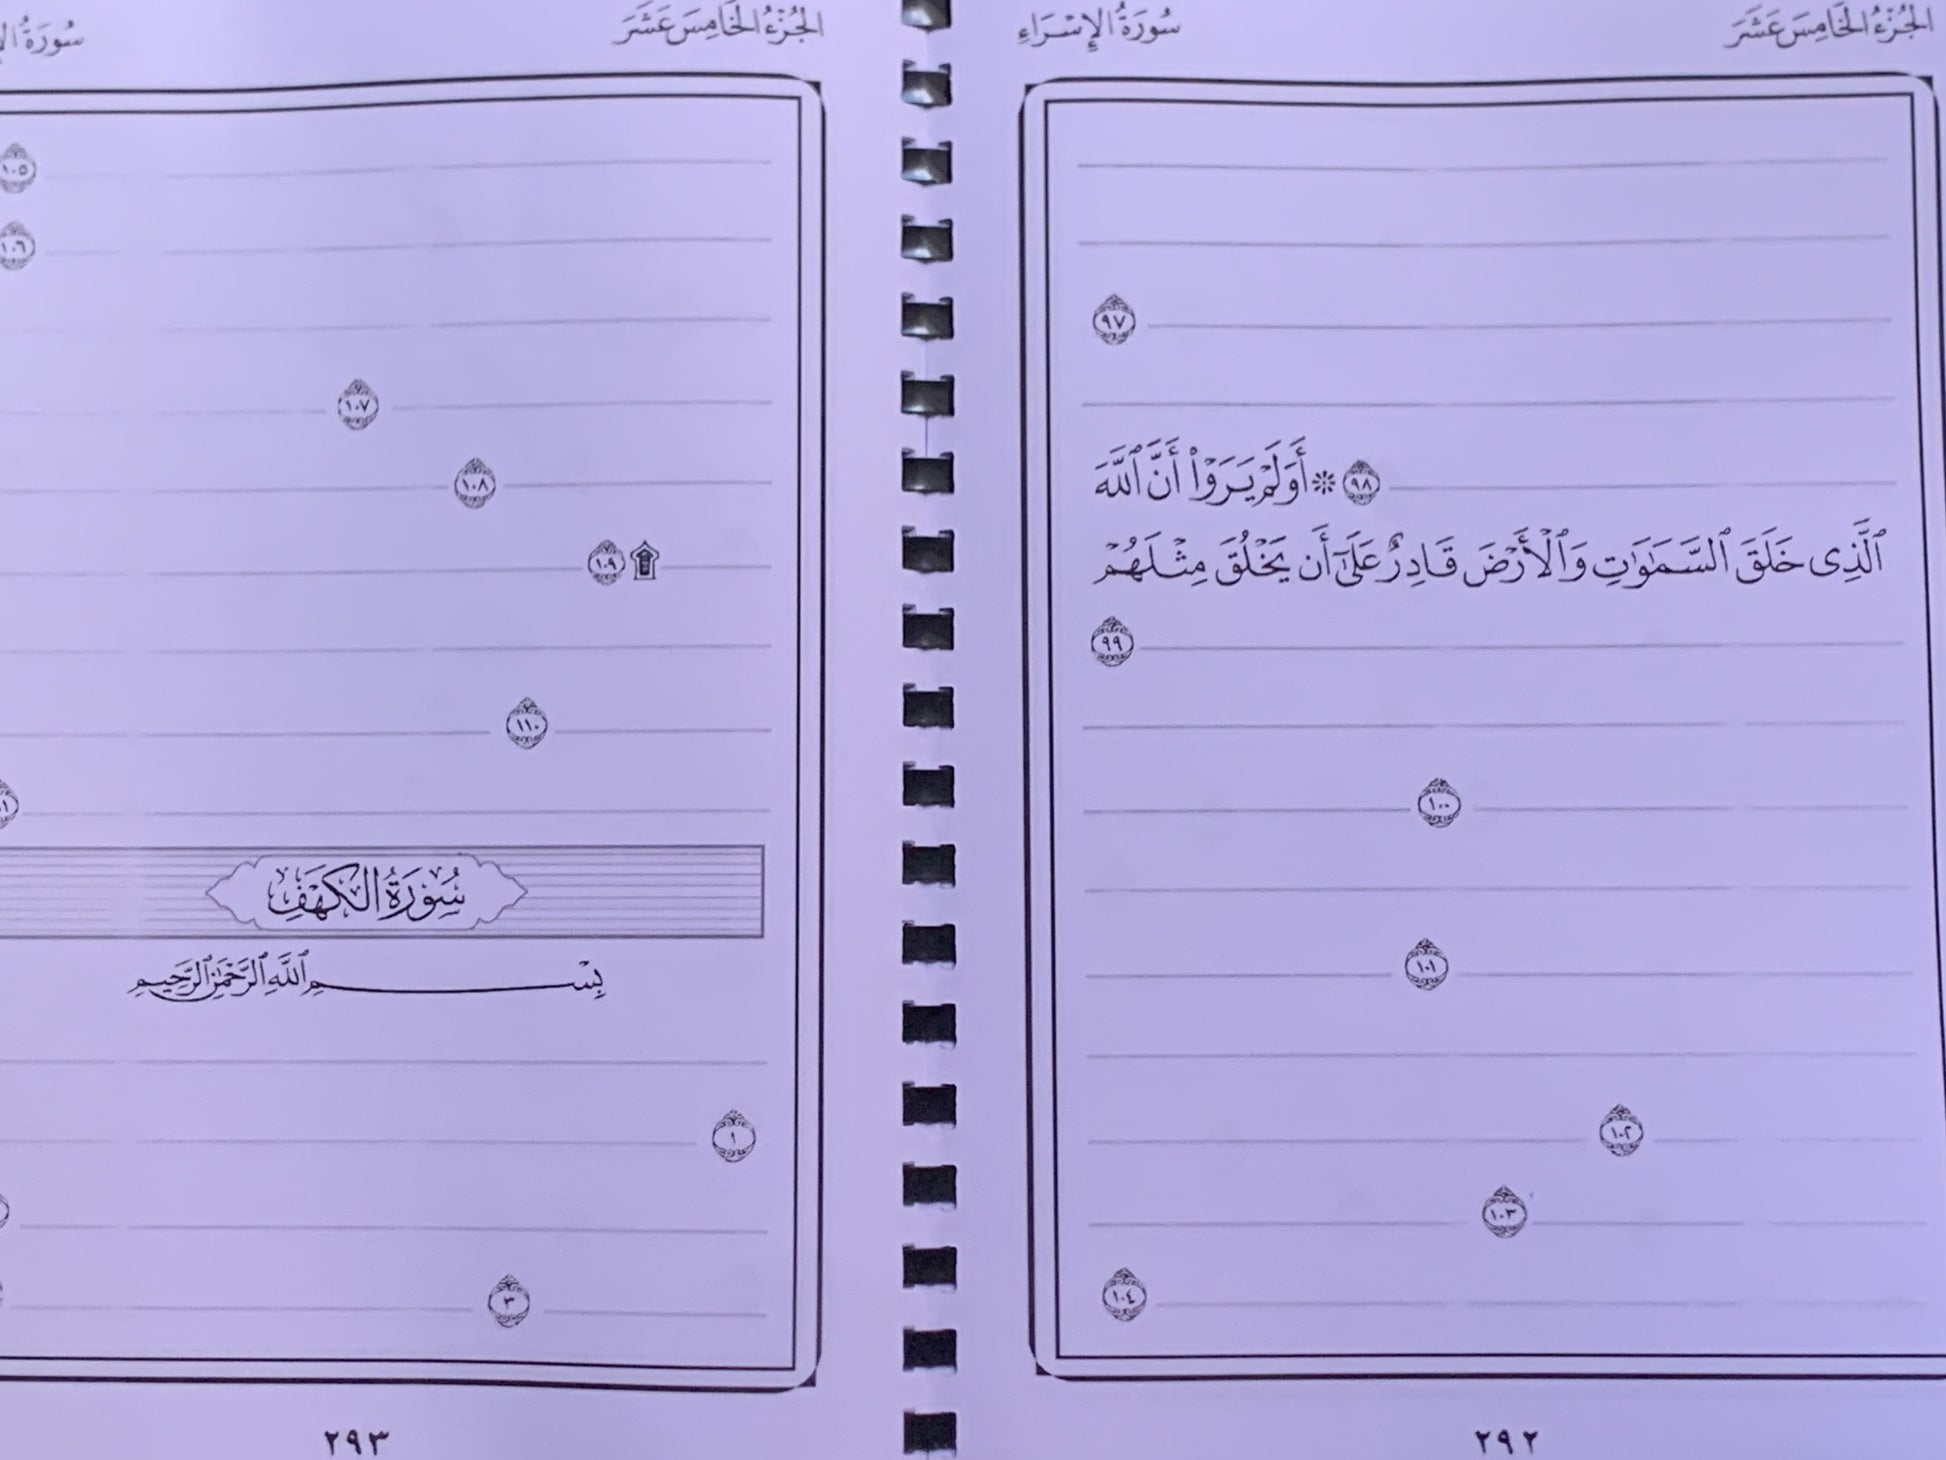 الجُزْءُ الخَامِسَ عَشَرَ
سُورَةُ الإِسْرَاءِ
٩٧
٩٨ * أَوَلَمْ يَرَوْا۟ أَنَّ ٱللَّهَ
ٱلَّذِى خَلَقَ ٱلسَّمَـٰوَٰتِ وَٱلْأَرْضَ قَادِرٌ عَلَىٰٓ أَن يَخْلُقَ مِثْلَهُمْ
٩٩
١٠٠
١٠١
١٠٢
١٠٣
١٠٤
٢٩٢
الجُزْءُ الخَامِسَ عَشَرَ
سُورَةُ
١٠٥
١٠٦
١٠٧
١٠٨
١٠٩
١١٠
سُورَةُ الكَهْفِ
بِسْمِ ٱللَّهِ ٱلرَّحْمَـٰنِ ٱلرَّحِيمِ
١
٣
٢٩٣